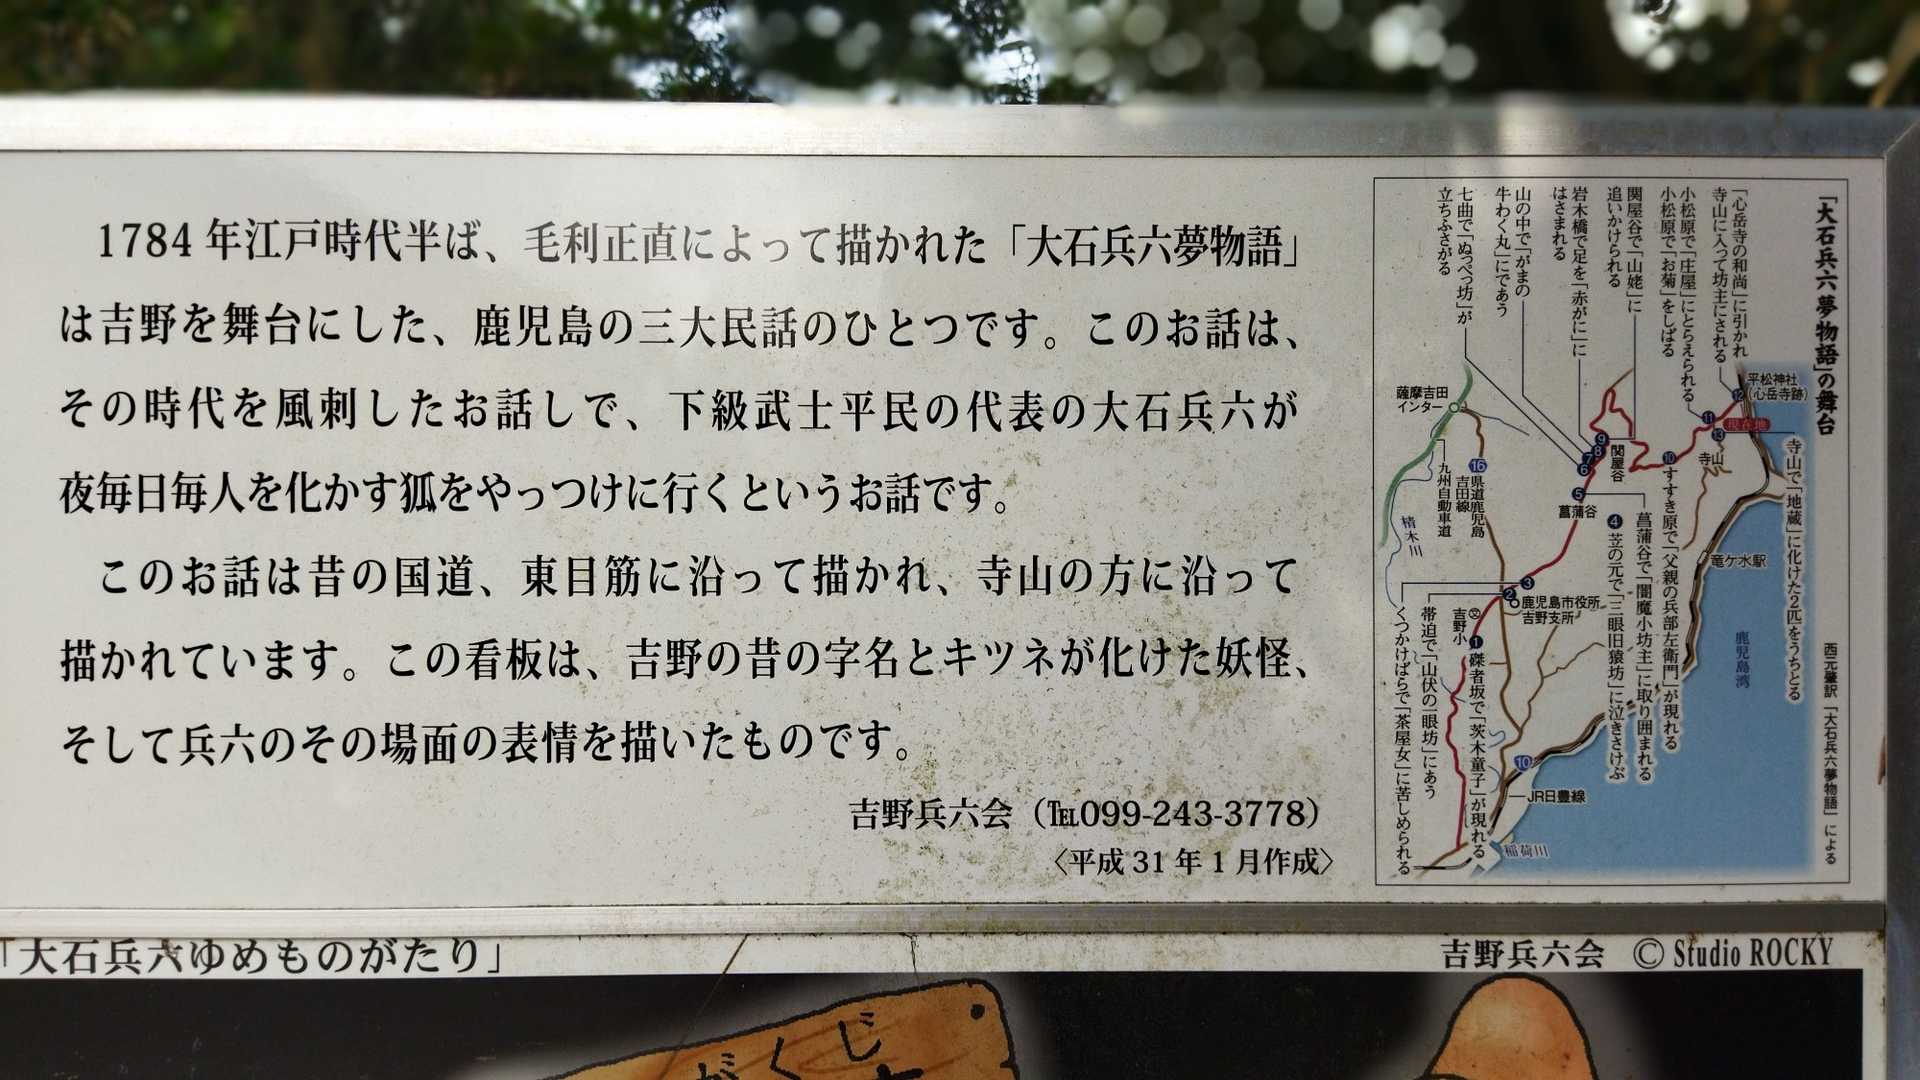 1784年江戸時代半ば、毛利正直によって描かれた「大石兵六夢物語」
は吉野を舞台にした、鹿児島の三大民話のひとつです。このお話は、
その時代を風刺したお話しで、下級武士平民の代表の大石兵六が
夜毎日毎人を化かす狐をやっつけに行くというお話です。
このお話は昔の国道、東目筋に沿って描かれ、寺山の方に沿って
描かれています。この看板は、吉野の昔の字名とキツネが化けた妖怪、
そして兵六のその場面の表情を描いたものです。
吉野兵六会（℡099-243-3778）
〈平成31年1月作成〉
「大石兵六夢物語」の舞台
西元肇訳「大石兵六夢物語」による
「心岳寺の和尚」に引かれ
寺山に入って坊主にされる
小松原で「庄屋」にとらえられる
小松原で「お菊」をしばる
関屋谷で「山姥」に
追いかけられる
岩木橋で足を「赤がに」に
はさまれる
山の中で「がまの
牛わく丸」にであう
七曲で「ぬっぺっ坊」が
立ちふさがる
平松神社
（心岳寺跡）
12
11
現在地
13
寺山
寺山で「地蔵」に化けた2匹をうちとる
薩摩吉田
インター
九州自動車道
16
県道鹿児島
吉田線
9
8
7
6
関屋谷
10
すすき原で「父親の兵部左衛門」が現れる
5
菖蒲谷
菖蒲谷で「闇魔小坊主」に取り囲まれる
4
笠の元で「三眼旧猿坊」に泣きさけぶ
棈木川
竜ケ水駅
3
2
鹿児島市役所
吉野支所
吉野小
1
磔者坂で「茨木童子」が現れる
帯迫で「山伏の一眼坊」にあう
くつかけばらで「茶屋女」に苦しめられる
鹿児島湾
10
JR日豊線
稲荷川
「大石兵六ゆめものがたり」
吉野兵六会 © Studio ROCKY
じ
がく